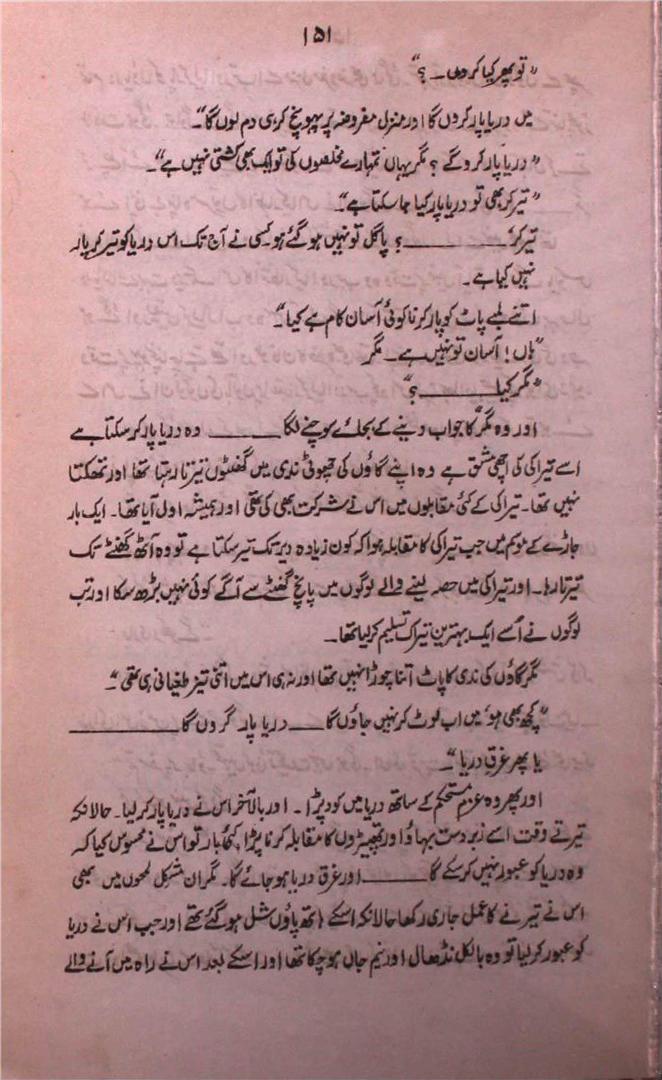 ۱۵۱
"تو پھر کیا کروں۔ ؟"
میں دریا پار کروں گا اور منزل مفروضہ پر پہونچ کر ہی دم لوں گا"۔
"دریا پار کرو گے ؟ مگر یہاں تمہارے مخلصوں کی تو ایک بھی کشتی نہیں ہے"۔
"تیر کر بھی تو دریا پار کیا جا سکتا ہے"۔
تیر کر ______ ؟ پاگل تو نہیں ہو گئے ہو کسی نے آج تک اس دریا کو تیر کر پار
نہیں کیا ہے۔
اتنے لمبے پاٹ کو پار کرنا کوئی آسان کام ہے کیا"۔
"ہاں! آسان تو نہیں ہے۔ مگر
"مگر کیا ______ ؟"
اور وہ مگر کا جواب دینے کے بجائے سوچنے لگا ______ وہ دریا پار کر سکتا ہے
اسے تیراکی کی اچھی مشق ہے وہ اپنے گاؤں کی چھوٹی ندی میں گھنٹوں تیرتا رہتا تھا اور تھکتا
نہیں تھا۔ تیراکی کے کئی مقابلوں میں اس نے شرکت بھی کی تھی اور ہمیشہ اول آیا تھا۔ ایک بار
جاڑے کے موسم میں جب تیراکی کا مقابلہ ہوا کہ کون زیادہ دیر تک تیر سکتا ہے تو وہ آٹھ گھنٹے تک
تیرتا رہا۔ اور تیراکی میں حصہ لینے والے لوگوں میں پانچ گھنٹے سے آگے کوئی نہیں بڑھ سکا اور تب
لوگوں نے اُسے ایک بہترین تیراک تسلیم کر لیا تھا۔
مگر گاؤں کی ندی کا پاٹ اتنا چوڑا نہیں تھا اور نہ ہی اس میں اتنی تیز طغیانی ہی تھی"۔
"کچھ بھی ہو، میں اب لوٹ کر نہیں جاؤں گا ___ دریا پار کروں گا ______
یا پھر غرقِ دریا"۔
اور پھر وہ عزم مستحکم کے ساتھ دریا میں کود پڑا۔ اور بالآخر اس نے دریا پار کر لیا۔ حالانکہ
تیرتے وقت اسے زبردست بہاؤ اور تھپیڑوں کا مقابلہ کرنا پڑا، کئی بار تو اس نے محسوس کیا کہ
وہ دریا کو عبور نہیں کر سکے گا ______ اور غرق دریا ہو جائے گا۔ مگر ان مشکل لمحوں میں بھی
اس نے تیرنے کا عمل جاری رکھا حالانکہ اسکے ہاتھ پاؤں شل ہو گئے تھے اور جب اس نے دریا
کو عبور کر لیا تو وہ بالکل نڈھال اور نیم جاں ہو چکا تھا اور اسکے بعد اس نے راہ میں آنے والے